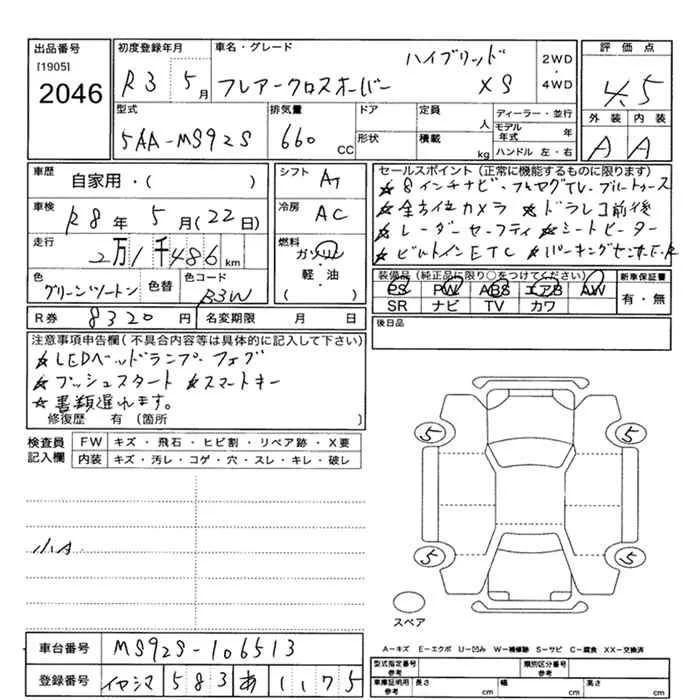 出品番号
[1905]
2046
初度登録年月
R3 5月
車名・グレード
ハイブリッド
フレアークロスオーバー XS
2WD
・
4WD
評価点
4.5
外装 内装
A A
型式
5AA-MS92S
排気量
660 cc
ドア
形状
定員
人
積載
kg
ディーラー・並行
モデル年式 年
ハンドル 左・右
車歴
自家用・( )
車検
R8年 5月(22日)
走行
2万1千486km
色
グリーンツートン
色替
色コード
B3W
シフト
AT
冷房
AC
燃料
ガソリン
・
軽・油
( )
セールスポイント(正常に機能するものに限ります)
★8インチナビ・フルセグTV・ブルートゥース
★全方位カメラ ★ドラレコ前後
★レーダーセーフティ ★シートヒーター
★ビルトインETC ★パーキングセンサF・R
装備品(純正品に限り○をつけてください)
PS PW ABS エアB AW
SR ナビ TV カワ
新車保証書
有・無
R券 8320円
名変期限 月 日
後日品
注意事項申告欄(不具合内容等は具体的に記入して下さい)
★LEDヘッドランプ・フォグ
★プッシュスタート ★スマートキー
★書類遅れます。
修復歴 有 (箇所 )
検査員記入欄
FW キズ・飛石・ヒビ割・リペア跡・X要
内装 キズ・汚レ・コゲ・穴・スレ・キレ・破レ
小A
5 5
5 5
スペア
車台番号 MS92S-106513
登録番号 583 あ 1175
A-キズ E-エクボ U-凹み W-補修跡 S-サビ C-腐食 XX-交換済
型式指定番号
参考
類別区分番号
車庫証明用
参考
長さ cm 幅 cm 高さ cm